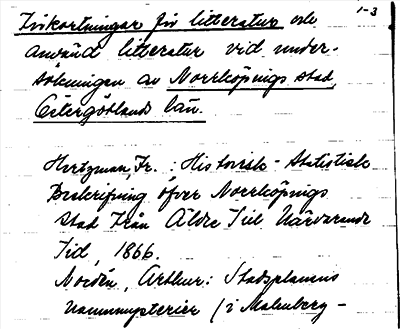 1-3
Förkortningar för litteratur och
använd litteratur vid under-
sökningen av Norrköpings stad,
Östergötlands län.
Hertzman, Fr.; Historisk-Statistisk
Beskrifning öfver Norrköpings
Stad Från Äldre Till Närvarande
Tid, 1866
Nordén, Arthur: Stadsplanens
namnmysterier (i Malmberg-